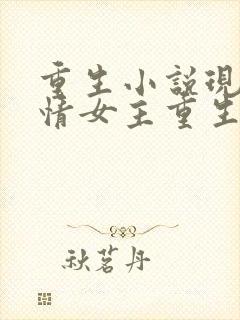 重生小說現
情女主重生
秋茗丹